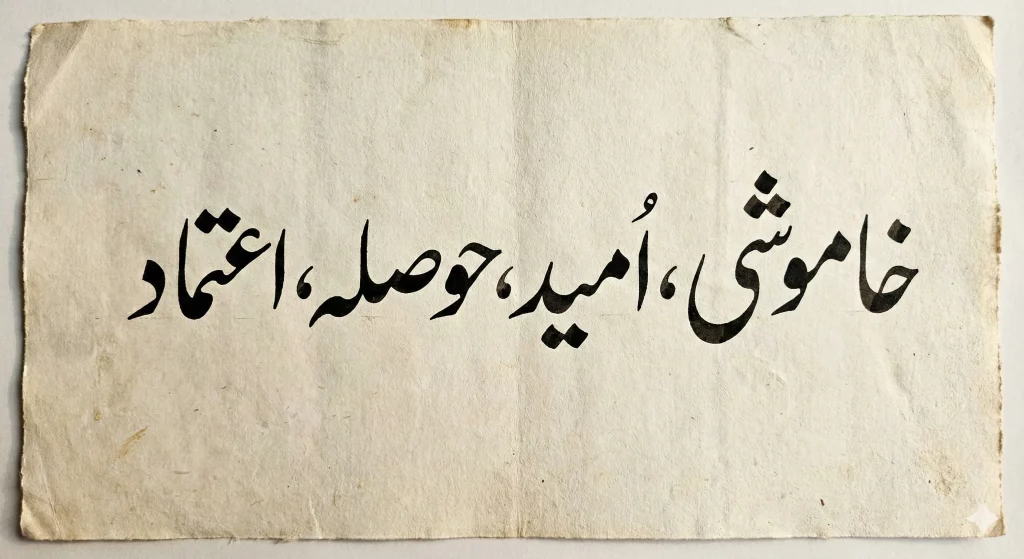 خاموشی، اُمید، حوصلہ، اعتماد